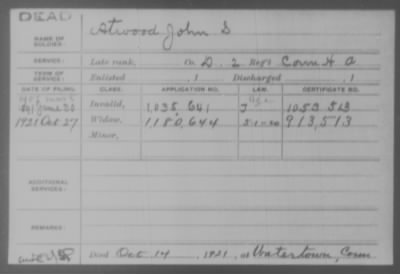 DEAD
NAME OF SOLDIER: Atwood John S
SERVICE: Late rank, Co. D. 2 Reg't Conn H A
TERM OF SERVICE: Enlisted , 1 Discharged , 1
DATE OF FILING. CLASS. APPLICATION NO. LAW. CERTIFICATE NO.
June 30 Invalid, 1,035,641 J 1053 513
1921 Oct 27 Widow, 1180,644 5-1-20 913,513
Minor,
ADDITIONAL SERVICES:
REMARKS:
Died Oct 14 , 1921, at Watertown, Conn